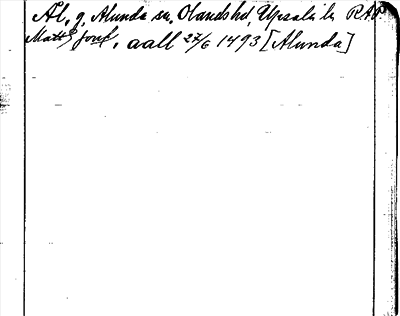 Ål, g, Alunda sn, Olands hd, Upsala län RAP
Matts Jons, aall 27/6 1493 [Alunda]